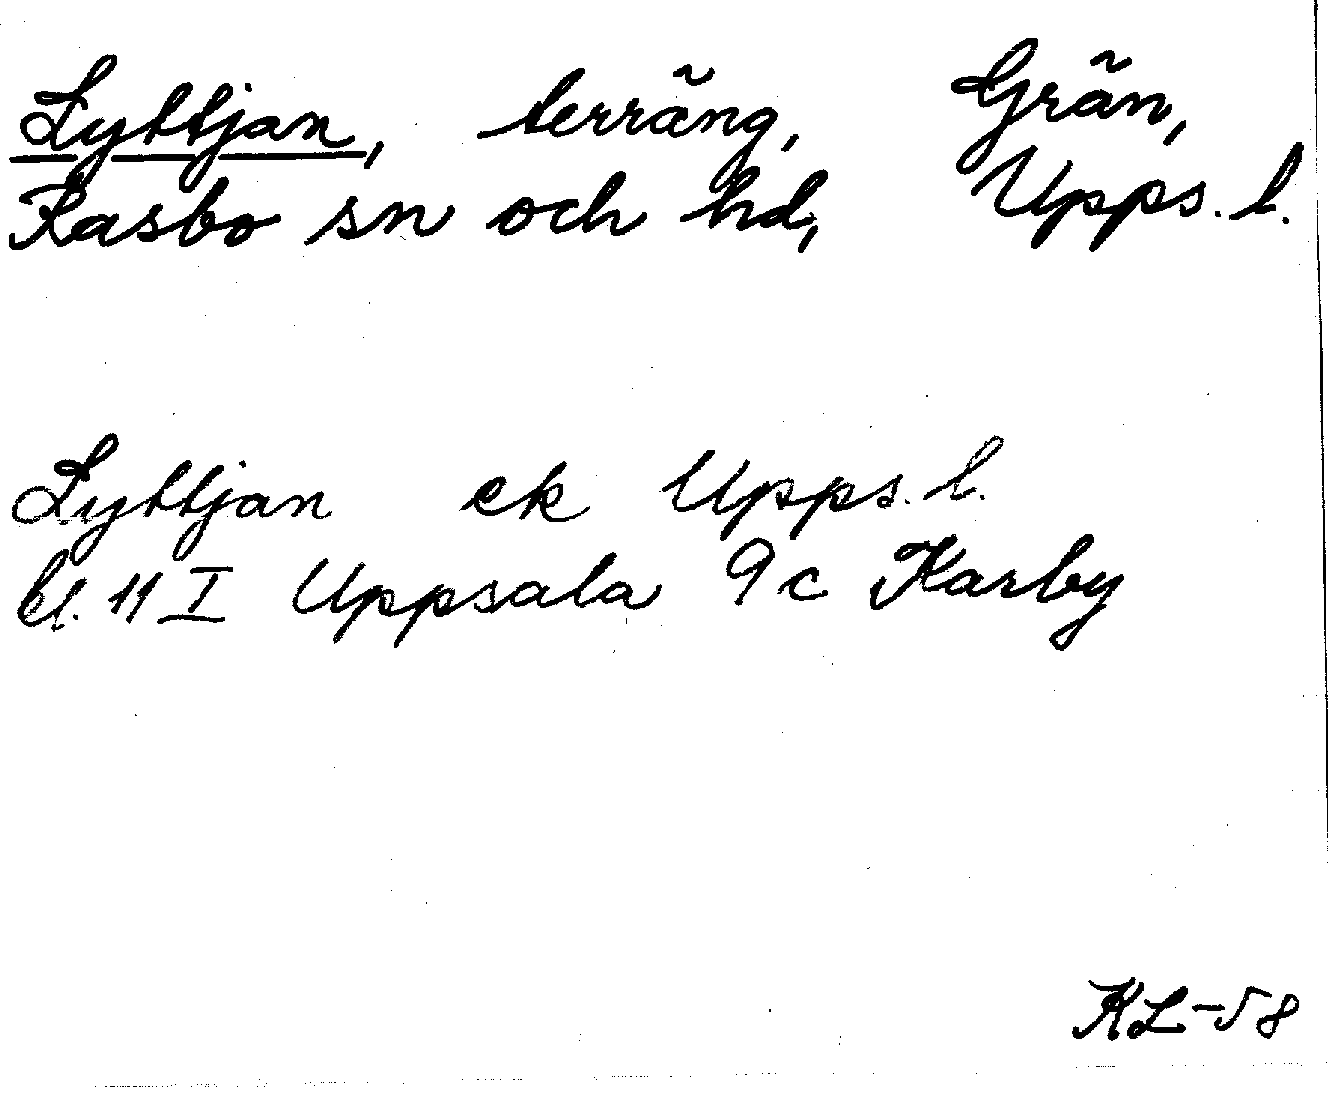 Lyttjan, terräng, Grän,
Rasbo sn och hd, Upps. l.
Lyttjan ek Upps. l.
bl. 11 I Uppsala 9c Karby
KL-58